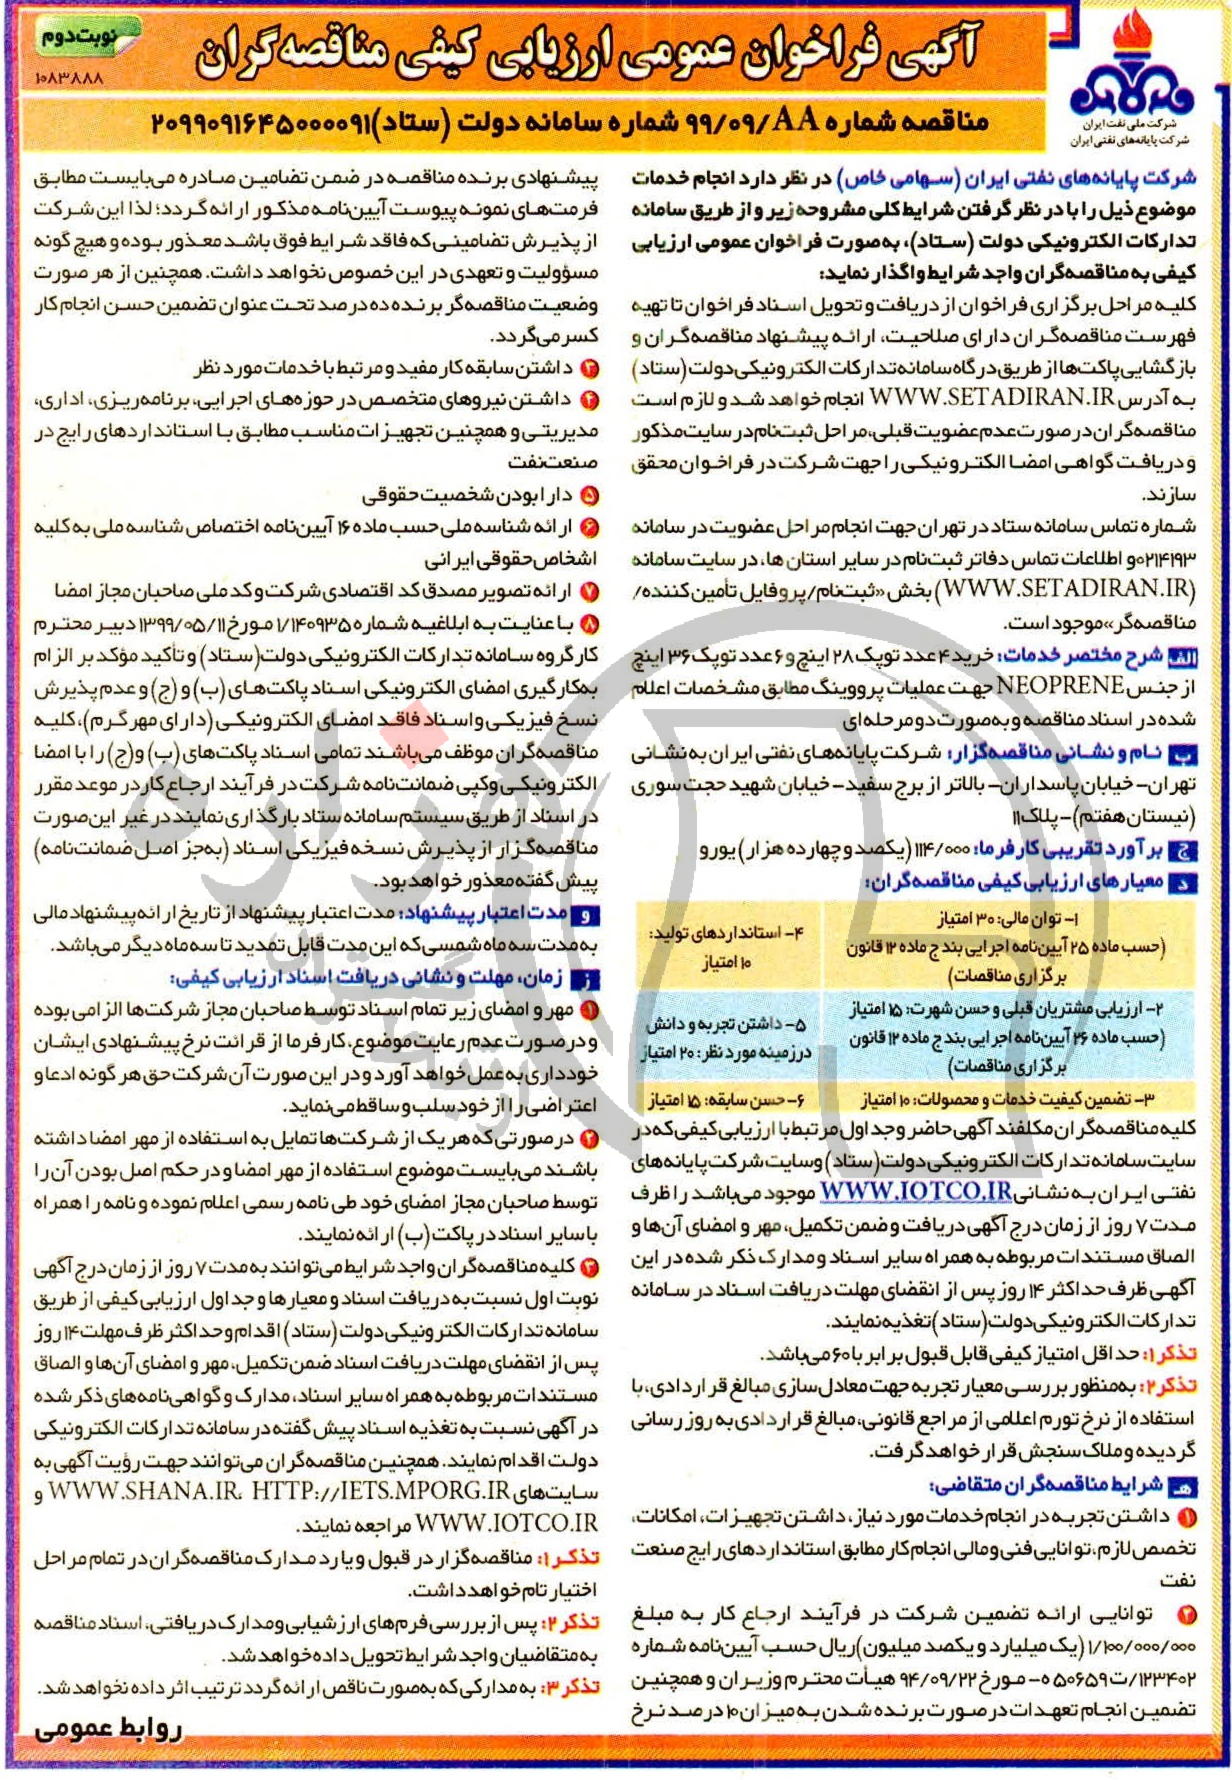 آگهی فراخوان عمومی ارزیابی کیفی مناقصه‌گران
نوبت دوم
۱۰۸۳۸۸۸
شرکت ملی نفت ایران
شرکت پایانه‌های نفتی ایران
مناقصه شماره ۹۹/۰۹/AA شماره سامانه دولت (ستاد) ۲۰۹۹۰۹۱۶۴۵۰۰۰۰۹۱
شرکت پایانه‌های نفتی ایران (سهامی خاص) در نظر دارد انجام خدمات
موضوع ذیل را با در نظر گرفتن شرایط کلی مشروحه زیر و از طریق سامانه
تدارکات الکترونیکی دولت (ستاد)، به‌صورت فراخوان عمومی ارزیابی
کیفی به مناقصه‌گران واجد شرایط واگذار نماید:
کلیه مراحل برگزاری فراخوان از دریافت و تحویل اسناد فراخوان تا تهیه
فهرست مناقصه‌گران دارای صلاحیت، ارائه پیشنهاد مناقصه‌گران و
بازگشایی پاکت‌ها از طریق درگاه سامانه تدارکات الکترونیکی دولت (ستاد)
به آدرس WWW.SETADIRAN.IR انجام خواهد شد و لازم است
مناقصه‌گران در صورت عدم عضویت قبلی، مراحل ثبت‌نام در سایت مذکور
و دریافت گواهی امضا الکترونیکی را جهت شرکت در فراخوان محقق
سازند.
شماره تماس سامانه ستاد در تهران جهت انجام مراحل عضویت در سامانه
۰۲۱۴۱۹۳ و اطلاعات تماس دفاتر ثبت‌نام در سایر استان ها، در سایت سامانه
(WWW.SETADIRAN.IR) بخش «ثبت‌نام/پروفایل تأمین کننده/
مناقصه‌گر» موجود است.
الف شرح مختصر خدمات: خرید ۴ عدد توپک ۲۸ اینچ و ۶ عدد توپک ۳۶ اینچ
از جنس NEOPRENE جهت عملیات پرووینگ مطابق مشخصات اعلام
شده در اسناد مناقصه و به‌صورت دو مرحله‌ای
ب نام و نشانی مناقصه‌گزار: شرکت پایانه‌های نفتی ایران به نشانی
تهران- خیابان پاسداران- بالاتر از برج سفید- خیابان شهید حجت سوری
(نیستان هفتم)- پلاک ۱۱
ج برآورد تقریبی کارفرما: ۱۱۴/۰۰۰ (یکصد و چهارده هزار) یورو
د معیارهای ارزیابی کیفی مناقصه‌گران:
۱- توان مالی: ۳۰ امتیاز
(حسب ماده ۲۵ آیین‌نامه اجرایی بند ج ماده ۱۲ قانون
برگزاری مناقصات)
۴- استانداردهای تولید:
۱۰ امتیاز
۲- ارزیابی مشتریان قبلی و حسن شهرت: ۱۵ امتیاز
(حسب ماده ۲۶ آیین‌نامه اجرایی بند ج ماده ۱۲ قانون
برگزاری مناقصات)
۵- داشتن تجربه و دانش
در زمینه مورد نظر: ۲۰ امتیاز
۳- تضمین کیفیت خدمات و محصولات: ۱۰ امتیاز
۶- حسن سابقه: ۱۵ امتیاز
کلیه مناقصه‌گران مکلفند آگهی حاضر و جداول مرتبط با ارزیابی کیفی که در
سایت سامانه تدارکات الکترونیکی دولت (ستاد) و سایت شرکت پایانه‌های
نفتی ایران به نشانی WWW.IOTCO.IR موجود می‌باشد را ظرف
مدت ۷ روز از زمان درج آگهی دریافت و ضمن تکمیل، مهر و امضای آن‌ها و
الصاق مستندات مربوطه به همراه سایر اسناد و مدارک ذکر شده در این
آگهی ظرف حداکثر ۱۴ روز پس از انقضای مهلت دریافت اسناد در سامانه
تدارکات الکترونیکی دولت (ستاد) تغذیه نمایند.
تذکر۱: حداقل امتیاز کیفی قابل قبول برابر با ۶۰ می‌باشد.
تذکر۲: به‌منظور بررسی معیار تجربه جهت معادل‌سازی مبالغ قراردادی، با
استفاده از نرخ تورم اعلامی از مراجع قانونی، مبالغ قراردادی به روز رسانی
گردیده و ملاک سنجش قرار خواهد گرفت.
هـ شرایط مناقصه‌گران متقاضی:
۱ داشتن تجربه در انجام خدمات مورد نیاز، داشتن تجهیزات، امکانات،
تخصص لازم، توانایی فنی و مالی انجام کار مطابق استانداردهای رایج صنعت
نفت
۲ توانایی ارائه تضمین شرکت در فرآیند ارجاع کار به مبلغ
۱/۱۰۰/۰۰۰/۰۰۰ (یک میلیارد و یکصد میلیون) ریال حسب آیین‌نامه شماره
۱۲۳۴۰۲/ت ۵۰۶۵۹ ه- مورخ ۹۴/۰۹/۲۲ هیأت محترم وزیران و همچنین
تضمین انجام تعهدات در صورت برنده شدن به میزان ۱۰ درصد نرخ
پیشنهادی برنده مناقصه در ضمن تضامین صادره می‌بایست مطابق
فرمت‌های نمونه پیوست آیین‌نامه مذکور ارائه گردد؛ لذا این شرکت
از پذیرش تضامینی که فاقد شرایط فوق باشد معذور بوده و هیچ گونه
مسؤولیت و تعهدی در این خصوص نخواهد داشت. همچنین از هر صورت
وضعیت مناقصه‌گر برنده ده درصد تحت عنوان تضمین حسن انجام کار
کسر می‌گردد.
۳ داشتن سابقه کار مفید و مرتبط با خدمات مورد نظر
۴ داشتن نیروهای متخصص در حوزه‌های اجرایی، برنامه‌ریزی، اداری،
مدیریتی و همچنین تجهیزات مناسب مطابق با استانداردهای رایج در
صنعت نفت
۵ دارا بودن شخصیت حقوقی
۶ ارائه شناسه ملی حسب ماده ۱۶ آیین‌نامه اختصاص شناسه ملی به کلیه
اشخاص حقوقی ایرانی
۷ ارائه تصویر مصدق کد اقتصادی شرکت و کد ملی صاحبان مجاز امضا
۸ با عنایت به ابلاغیه شماره ۱/۱۴۰۹۳۵ مورخ ۱۳۹۹/۰۵/۱۱ دبیر محترم
کارگروه سامانه تدارکات الکترونیکی دولت (ستاد) و تأکید مؤکد بر الزام
به‌کارگیری امضای الکترونیکی اسناد پاکت‌های (ب) و (ج) و عدم پذیرش
نسخ فیزیکی و اسناد فاقد امضای الکترونیکی (دارای مهر گرم)، کلیه
مناقصه‌گران موظف می‌باشند تمامی اسناد پاکت‌های (ب) و (ج) را با امضا
الکترونیکی و کپی ضمانت‌نامه شرکت در فرآیند ارجاع کار در موعد مقرر
در اسناد از طریق سیستم سامانه ستاد بارگذاری نمایند در غیر این صورت
مناقصه‌گزار از پذیرش نسخه فیزیکی اسناد (به‌جز اصل ضمانت‌نامه)
پیش گفته معذور خواهد بود.
و مدت اعتبار پیشنهاد: مدت اعتبار پیشنهاد از تاریخ ارائه پیشنهاد مالی
به مدت سه ماه شمسی که این مدت قابل تمدید تا سه ماه دیگر می‌باشد.
ز زمان، مهلت و نشانی دریافت اسناد ارزیابی کیفی:
۱ مهر و امضای زیر تمام اسناد توسط صاحبان مجاز شرکت‌ها الزامی بوده
و در صورت عدم رعایت موضوع، کارفرما از قرائت نرخ پیشنهادی ایشان
خودداری به‌عمل خواهد آورد و در این صورت آن شرکت حق هر گونه ادعا و
اعتراضی را از خود سلب و ساقط می‌نماید.
۲ در صورتی که هر یک از شرکت‌ها تمایل به استفاده از مهر امضا داشته
باشند می‌بایست موضوع استفاده از مهر امضا و در حکم اصل بودن آن را
توسط صاحبان مجاز امضای خود طی نامه رسمی اعلام نموده و نامه را همراه
با سایر اسناد در پاکت (ب) ارائه نمایند.
۳ کلیه مناقصه‌گران واجد شرایط می‌توانند به مدت ۷ روز از زمان درج آگهی
نوبت اول نسبت به دریافت اسناد و معیارها و جداول ارزیابی کیفی از طریق
سامانه تدارکات الکترونیکی دولت (ستاد) اقدام و حداکثر ظرف مهلت ۱۴ روز
پس از انقضای مهلت دریافت اسناد ضمن تکمیل، مهر و امضای آن‌ها و الصاق
مستندات مربوطه به همراه سایر اسناد، مدارک و گواهی‌نامه‌های ذکر شده
در آگهی نسبت به تغذیه اسناد پیش گفته در سامانه تدارکات الکترونیکی
دولت اقدام نمایند. همچنین مناقصه‌گران می‌توانند جهت رؤیت آگهی به
سایت‌های WWW.SHANA.IR، HTTP://IETS.MPORG.IR و
WWW.IOTCO.IR مراجعه نمایند.
تذکر۱: مناقصه‌گزار در قبول و یا رد مدارک مناقصه‌گران در تمام مراحل
اختیار تام خواهد داشت.
تذکر۲: پس از بررسی فرم‌های ارزشیابی و مدارک دریافتی، اسناد مناقصه
به متقاضیان واجد شرایط تحویل داده خواهد شد.
تذکر۳: به مدارکی که به‌صورت ناقص ارائه گردد ترتیب اثر داده نخواهد شد.
روابط عمومی